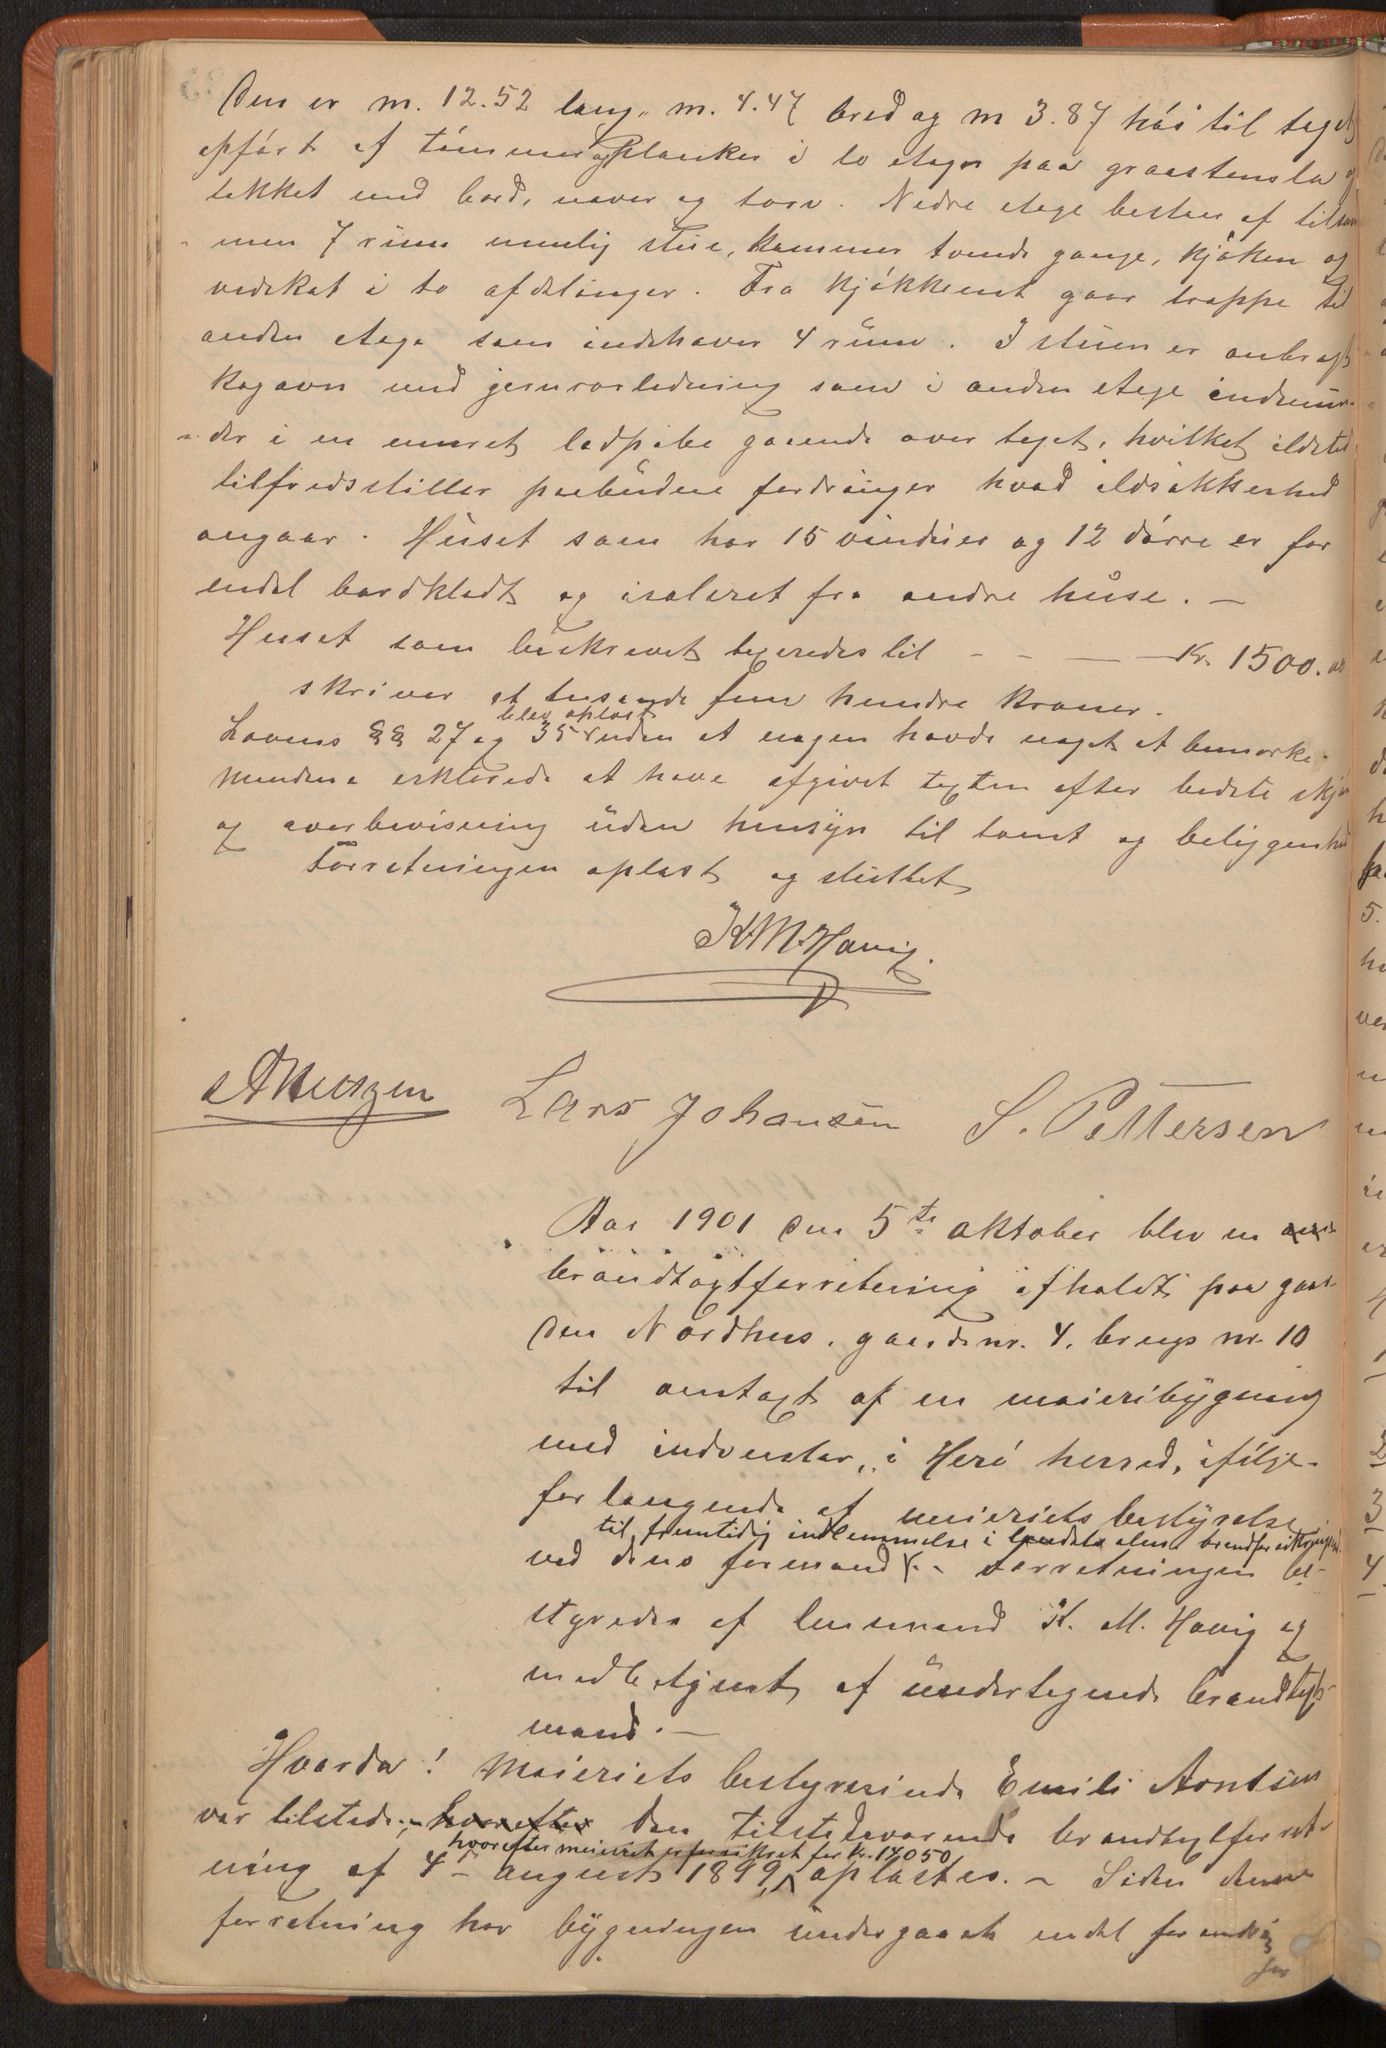 Den er m. 12.52 lang, m. 4.47 bred og m 3.87 høi til taget
opført af tømmer og planker i to etager paa graastensla og
tekket med bord, never og torv. Nedre etage bestaar af tilsam
men 7 rum nemlig stue, kammer tvende gange, kjøken og
vedskot i to afdelinger. Fra kjøkkenet gaar trappe til
anden etage som indehaver 4 rum. I stuen er anbragt
kogovn med jernrørledning som i anden etage indmun-
der i en muret ledpibe gaaende over taget, hvilket ildsted
tilfredsstiller paabudene fordringer hvad ildsikkerhed
angaar. Huset som har 15 vinduer og 12 dørre er for
endel bordkledt og isoleret fra andre huse. —
Huset som beskrevet taxeredes til - - — — Kr. 1500.00
skriver et tusende fem hundre kroner.
blev oplæst
Lovens §§ 27 og 35 uden at nogen havde noget at bemærke.
Mændene erklærede at have afgivet taxten efter bedste skjøn
og overbevisning uden hensyn til tomt og beliggenhed
Forretningen oplæst og sluttet
K. M. Havig.
Lars Johansen S. Pettersen
Aar 1901 den 5te oktober blev en
brandtaxtforretning afholdt paa gaar
den Nordhus, gaardsnr. 4, brugs nr. 10
til omtaxt af en meieribygning
med indventar, i Herø herred, ifølge
forlangende af meieriets bestyrelse
til fremtidig indlemmelse i brandforsikrings
ved dens formand. - Forretningen be-
styredes af lensmand K. M. Havig og
medbetjent af undertegnede brandtaxt
mænd. —
Hvorda! Meieriets bestyrerinde Emili Arntsen
var tilstede, hvorefter den tilstedeværende brandtaxtforret
hvorefter meieriet er forsikret for kr. 14050
ning af 4de august 1899, oplæstes. - Siden denne
forretning har bygningen undergaaet endel forandrin
ger